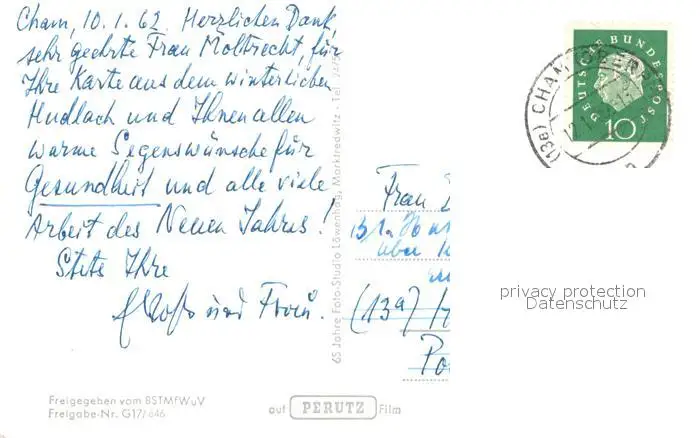 Cham, 10.1.62. Herzlichen Dank,
sehr geehrte Frau Moltrecht, für
Ihre Karte aus dem winterlichen
Hudlach und Ihnen allen
warme Segenswünsche für
Gesundheit und alle viele
Arbeit des Neuen Jahres!
Stets Ihre
und Frau.
Freigegeben vom BSTMfWuV
Freigabe-Nr. G17/646
auf PERUTZ Film
65 Jahre Foto-Studio Löwenhag, Marktredwitz - Tel.
Frau
über
(13a)
DEUTSCHE BUNDESPOST
10
(13a) CHAM (OBERPF
privacy protection
Datenschutz